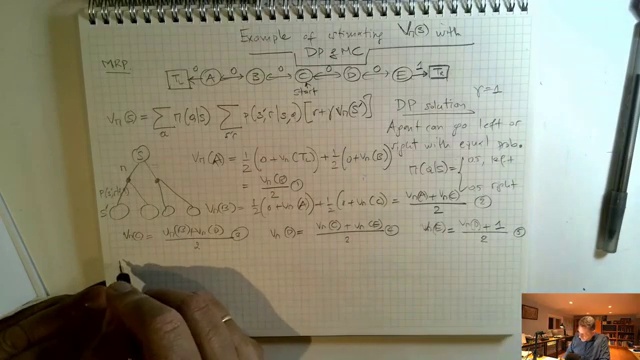 Example of estimating Vπ(s) with
DP & MC
MRP
T₁ 0 A 0 B 0 C 0 D 0 E 1 T₂
start
γ=1
Vπ(s) = Σₐ π(a|s) Σₛ'ᵣ p(s',r|s,a) [r+γVπ(s')]
DP solution
Agent can go left or
right with equal prob.
π(a|s) = { 0.5, left
0.5 right
S
π
s'
Vπ(A) = 1/2 (0+Vπ(T₁)) + 1/2 (0+Vπ(B))
= Vπ(B)/2 ①
Vπ(B) = 1/2 (0+Vπ(A)) + 1/2 (0+Vπ(C)) = (Vπ(A)+Vπ(C))/2 ②
Vπ(C) = (Vπ(B)+Vπ(D))/2 ③ Vπ(D) = (Vπ(C)+Vπ(E))/2 ④ Vπ(E) = (Vπ(D)+1)/2 ⑤